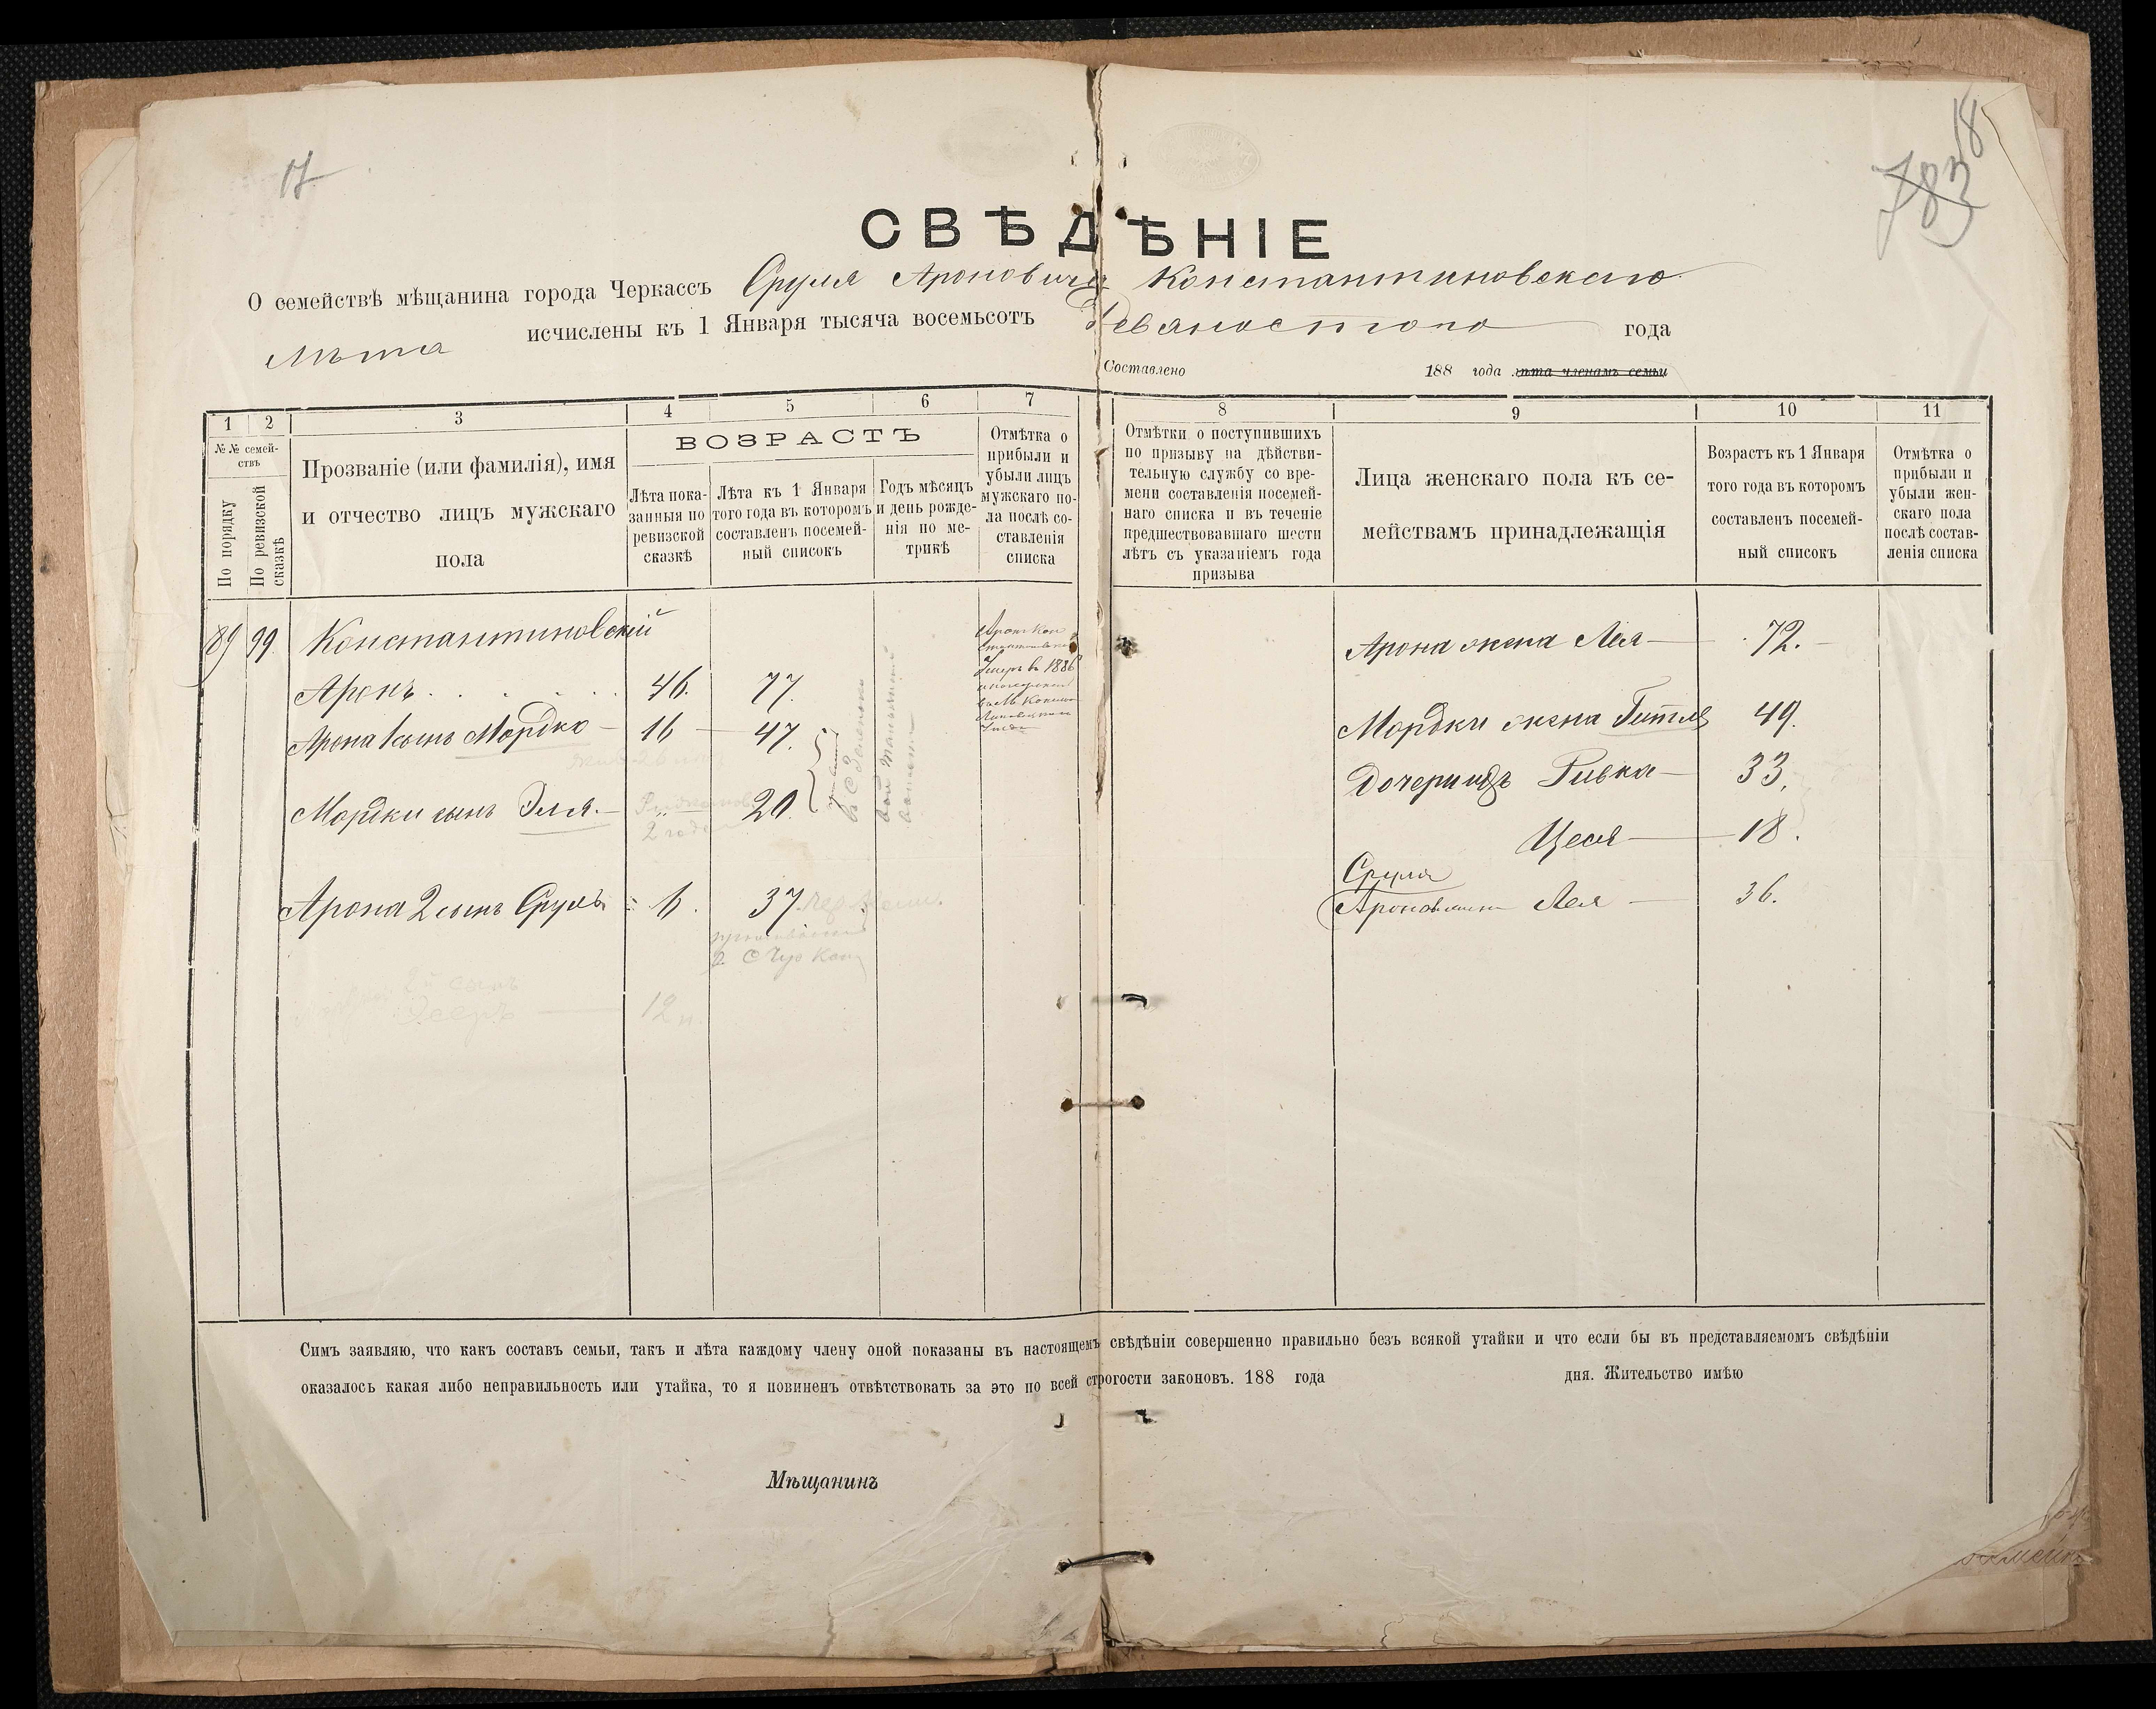 17
18
783
СВѢДѢНІЕ
О семействѣ мѣщанина города Черкассъ Сруля Ароновича Константиновскаго
Лѣта исчислены къ 1 Января тысяча восемьсотъ девяностого года
Составлено 188 года лѣта членамъ семьи
1 2 3 4 5 6 7 8 9 10 11
№№ семействъ
По порядку
По ревизской сказкѣ
Прозваніе (или фамилія), имя
и отчество лицъ мужскаго
пола
ВОЗРАСТЪ
Лѣта пока-
занныя по
ревизской
сказкѣ
Лѣта къ 1 Января
того года въ которомъ
составленъ посемей-
ный списокъ
Годъ мѣсяцъ
и день рожде-
нія по ме-
трикѣ
Отмѣтка о
прибыли и
убыли лицъ
мужскаго по-
ла послѣ со-
ставленія
списка
Отмѣтки о поступившихъ
по призыву на дѣйстви-
тельную службу со вре-
мени составленія посемей-
наго списка и въ теченіе
предшествовавшаго шести
лѣтъ съ указаніемъ года
призыва
Лица женскаго пола къ се-
мействамъ принадлежащія
Возрастъ къ 1 Января
того года въ которомъ
составленъ посемей-
ный списокъ
Отмѣтка о
прибыли и
убыли жен-
скаго пола
послѣ состав-
ленія списка
89 99. Константиновскій
Аронъ 46. 77.
Аронъ Кон
Умеръ въ 1886
Арона жена Лея 72.
Арона 1 сынъ Мордко 16 47.
Мордки жена Гитля 49.
Дочери ихъ Ривка 33.
Мордки сынъ Эля. " 20.
Цеся 18.
Арона 2 сынъ Сруль 6. 37
Сруля
Ароновича Лея 36.
2й сынъ
12
Симъ заявляю, что какъ составъ семьи, такъ и лѣта каждому члену оной показаны въ настоящемъ свѣдѣніи совершенно правильно безъ всякой утайки и что если бы въ представляемомъ свѣдѣніи
оказалось какая либо неправильность или утайка, то я повиненъ отвѣтствовать за это по всей строгости законовъ. 188 года дня. Жительство имѣю
Мѣщанинъ